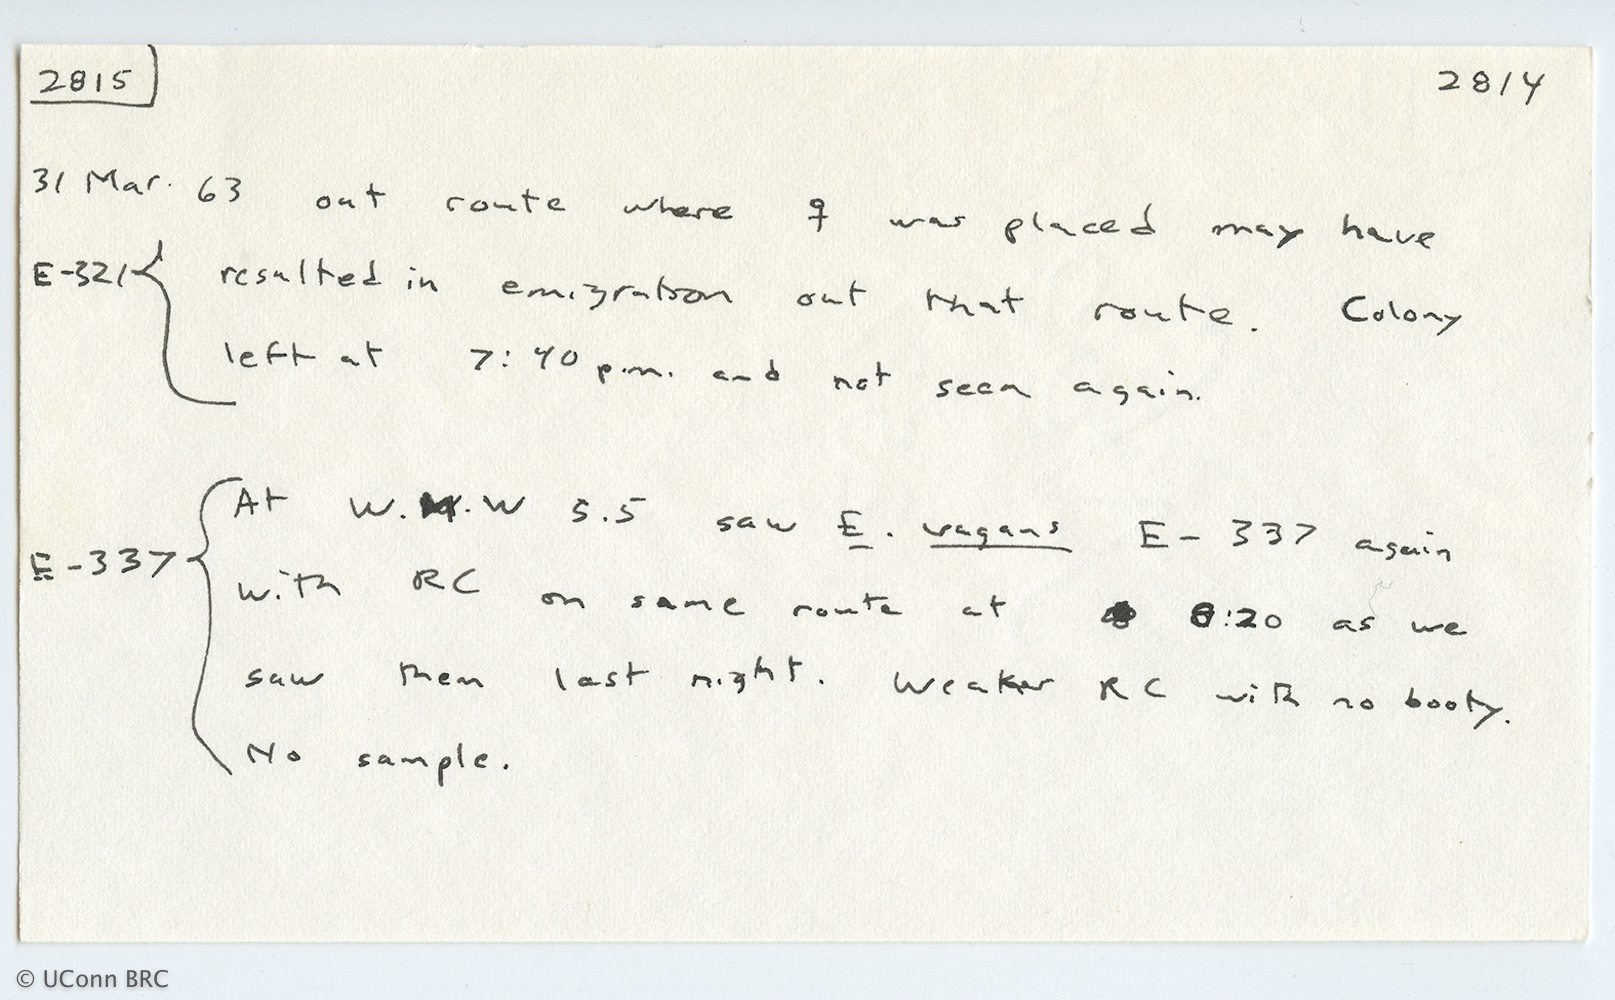 2815 2814
31 Mar. 63 out route where ♀ was placed may have
E-321 resulted in emigration out that route. Colony
left at 7:40 p.m. and not seen again.
At W. W 5.5 saw E. vagans E-337 again
E-337 with RC on same route at 8:20 as we
saw them last night. Weaker RC with no booty.
No sample.
© UConn BRC